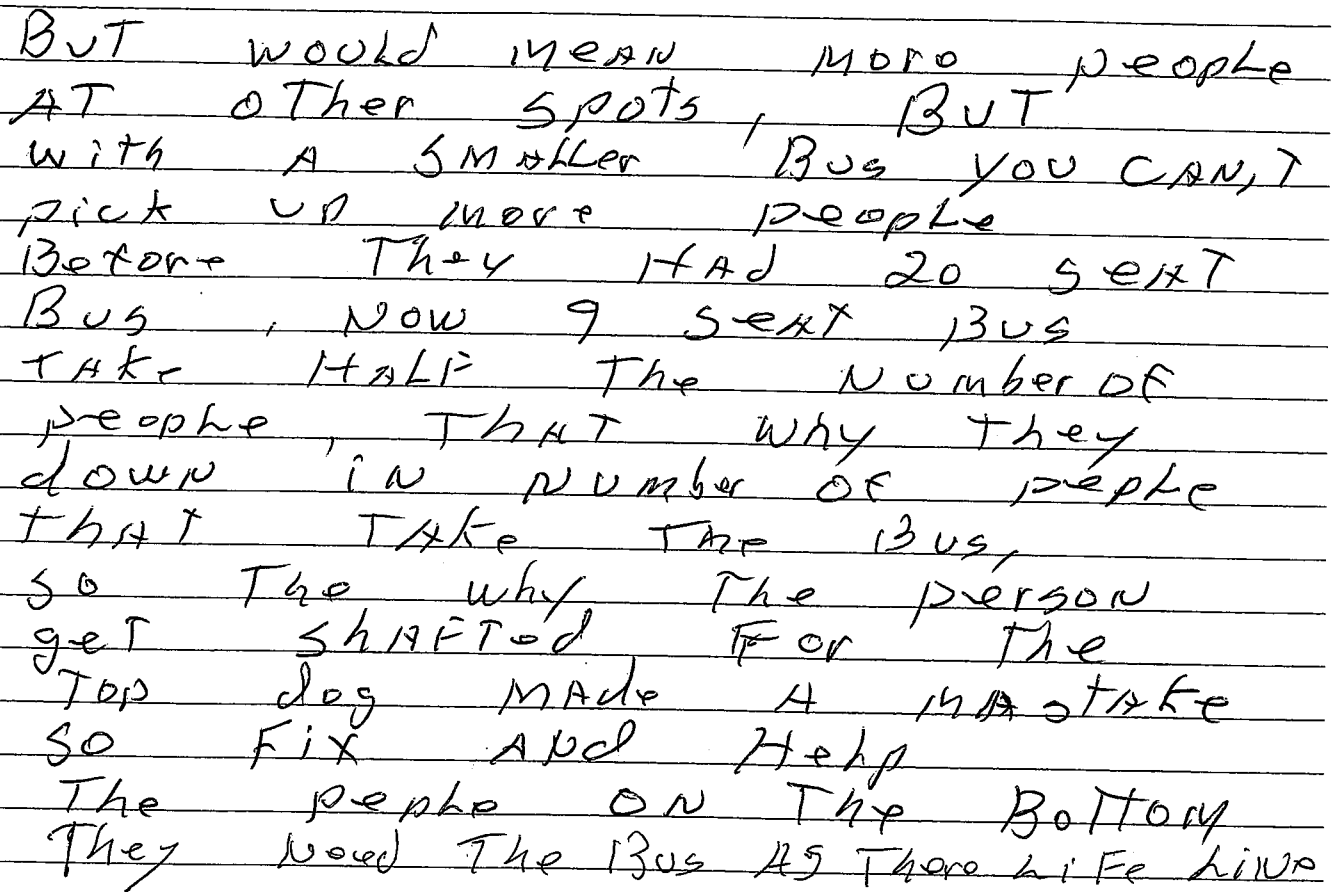 BUT WOULD MEAN MORE PEOPLE
AT OTHER SPOTS, BUT
WITH A SMALLER BUS YOU CAN,T
PICK UP MORE PEOPLE
BEFORE THEY HAD 20 SEAT
BUS, NOW 9 SEAT BUS
TAKE HALF THE NUMBER OF
PEOPLE, THAT WHY THEY
DOWN IN NUMBER OF PEPLE
THAT TAKE THE BUS,
SO THE WHY THE PERSON
GET SHAFTED FOR THE
TOP DOG MADE A MASTAKE
SO FIX AND HELP
THE PEPLE ON THE BOTTOM
THEY NEED THE BUS AS THERE LIFE LINE